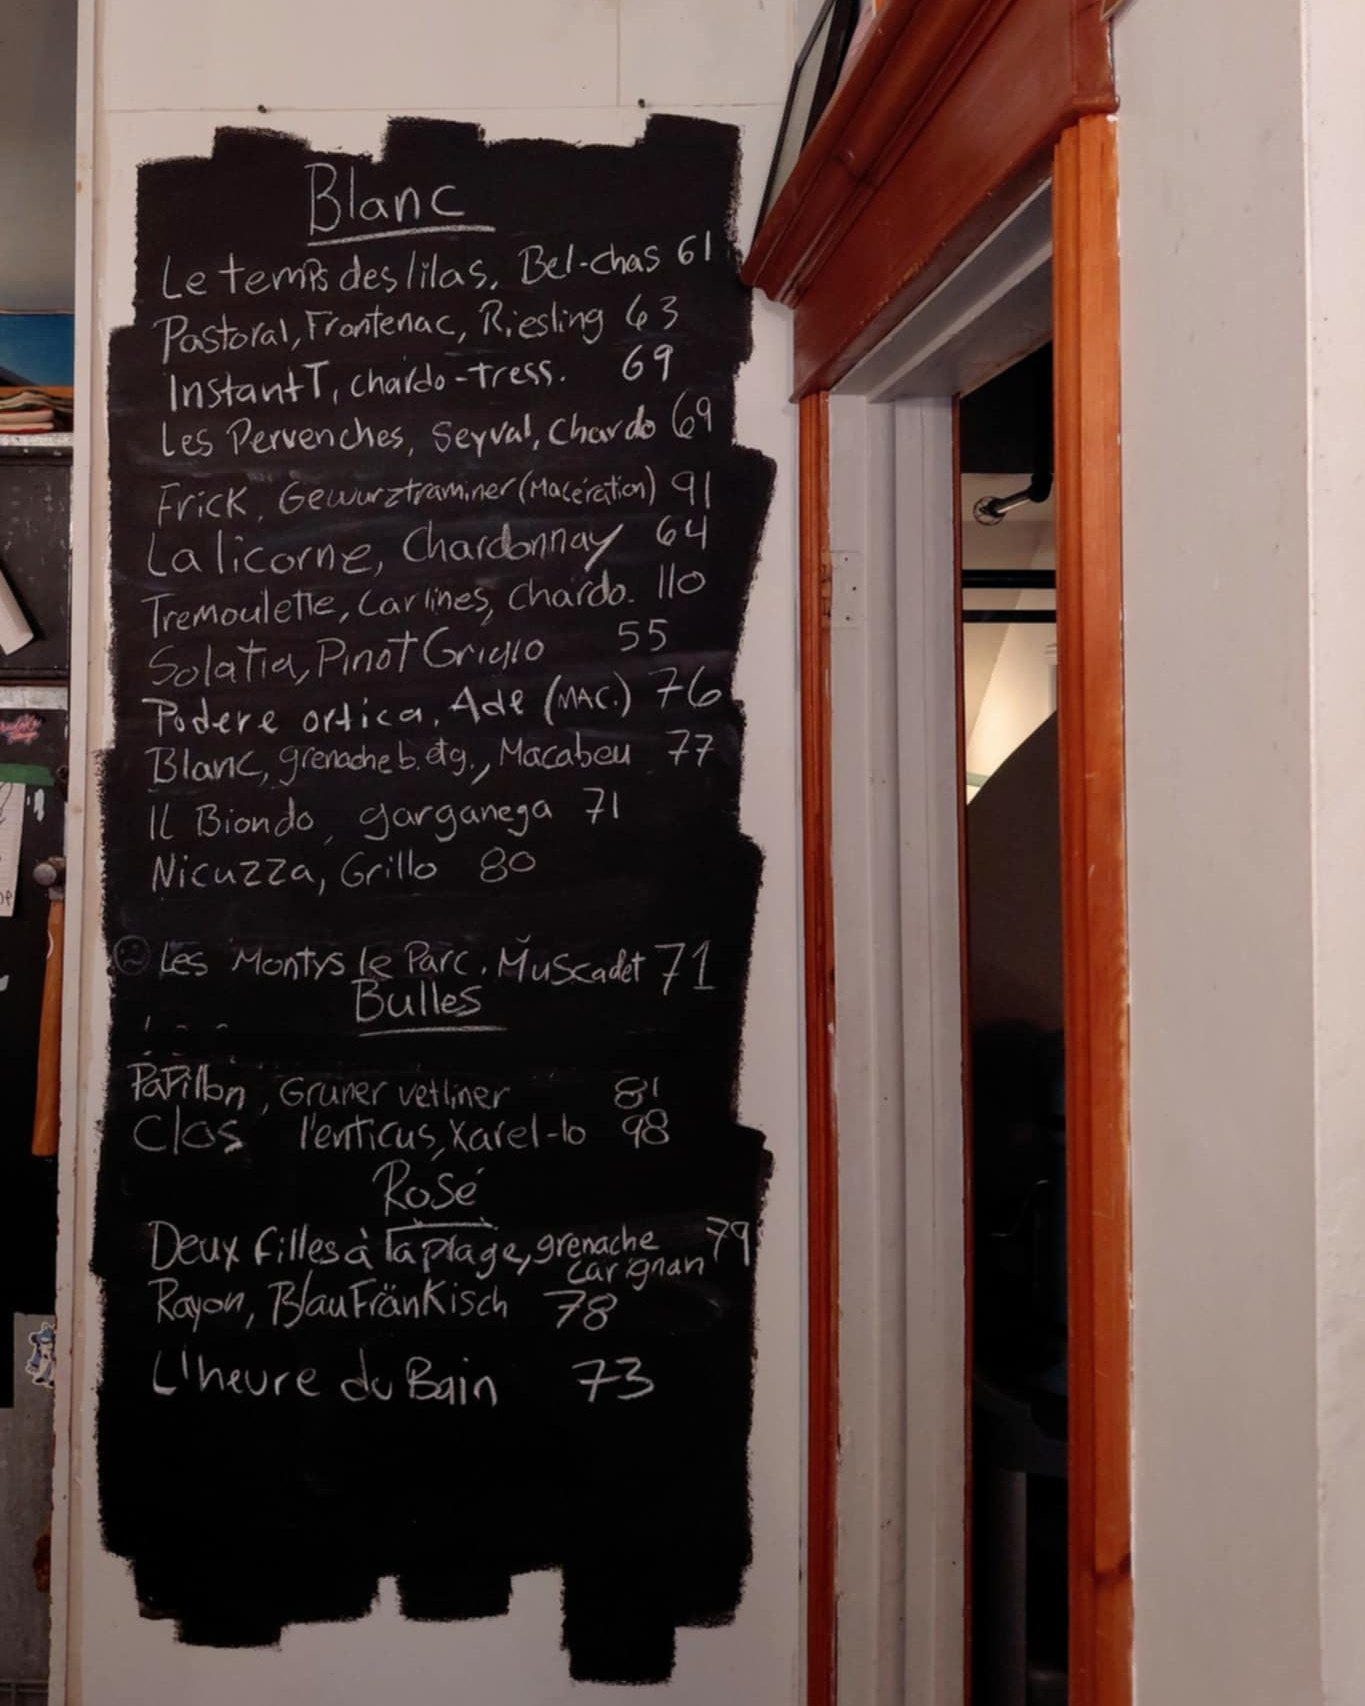 Blanc
Le temps des lilas, Bel-chas 61
Pastoral, Frontenac, Riesling 63
Instant T, chardo-tress. 69
Les Pervenches, Seyval, Chardo 69
Frick, Gewurztraminer (Macération) 91
La licorne, Chardonnay 64
Tremoulette, Carlines, Chardo. 110
Solatia, Pinot Grigio 55
Podere ortica, Ade (MAC.) 76
Blanc, grenache b. et g., Macabeu 77
Il Biondo, garganega 71
Nicuzza, Grillo 80
Les Montys le Parc, Muscadet 71
Bulles
Papillon, Gruner vetliner 81
Clos l'enticus, Xarel-lo 98
Rosé
Deux filles à la plage, grenache 79
carignan
Rayon, Blaufränkisch 78
L'heure du Bain 73